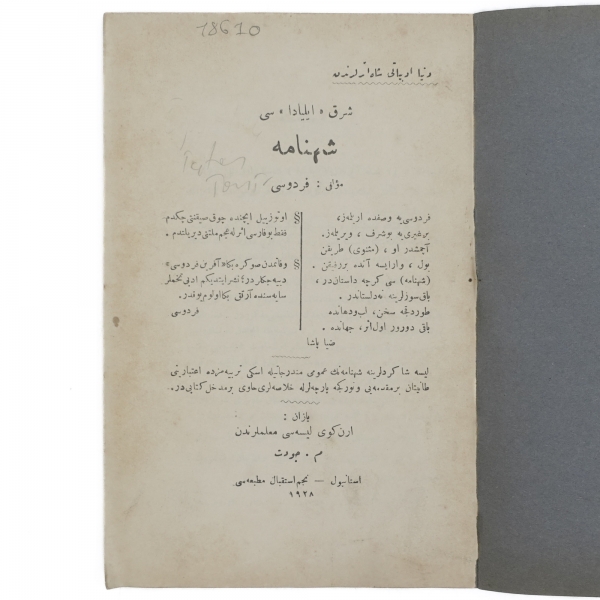 18610
دنیا ادبیاتی شاه اثرلرندن
شرق « ایلیادا » سی
شهنامه
مؤلفی : فردوسی
فردوسی یه وصفده ایریلمز،
برغیری یه بو شرف ، ویریلمز.
آچمشدر او ، (مثنوی) طریقن
بول ، وارایسه آنده بر رفیقن .
(شهنامه) سی کرچه داستان در ،
باق سوزلرینه نه دلستاندر .
طوردقجه سخن، لب و دهانده
باقی دورور اول اثر، جهانده .
ضیا پاشا
§ اوتوز ییل ایچنده چوق صیقنتی چکدم
فقط بو فارسی اثرله عجم ملتنی دیریلتدم .
§ وفاتمدن صوکره بکا « آفرین فردوسی »
دییه جکلر در ؛ نشر ایتدیکم ادبی تخملر
سایه سنده آرتق بکا اولوم یوقدر.
فردوسی
لیسه شاکردلرینه شهنامه نك عمومی مندرجاتیله اسکی تربیه مزده اعتبارینی
طانیتان بر مقدمه یی و تورکجه پارچه لرله خلاصه لری حاوی بر مدخل کتابی در.
یازان :
ارن کوی لیسه سی معلملرندن
م . جودت
استانبول — نجم استقبال مطبعه سی
۱۹۲۸